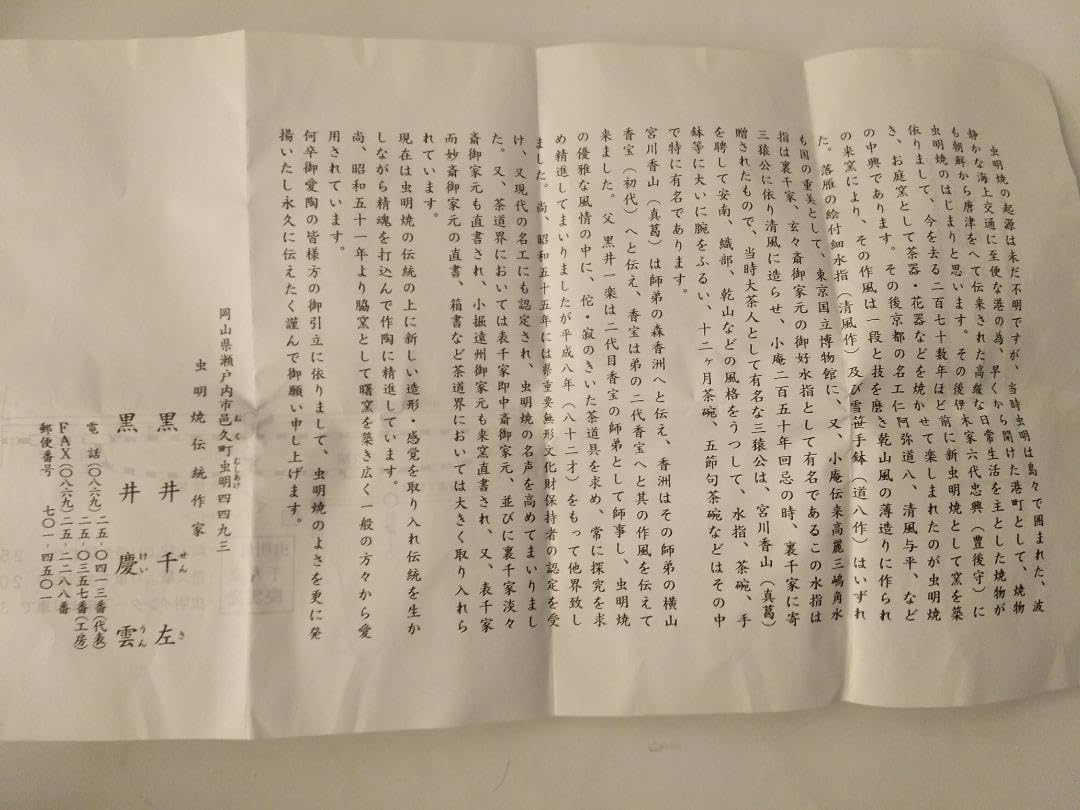 虫明焼の起源は未だ不明ですが、当時虫明は島々で囲まれた、波
静かな海上交通に至便な港の為、早くから開けた港町として、焼物
も朝鮮から唐津をへて伝来された高級な日常生活を主とした焼物が
虫明焼のはじまりと思います。その後伊木家六代忠興（豊後守）に
依りまして、今を去る二百七十数年ほど前に新虫明焼として窯を築
き、お庭窯として茶器・花器などを焼かせて楽しまれたのが虫明焼
の中興であります。その後京都の名工仁阿弥道八、清風与平、など
の来窯により、その作風は一段と技を磨き乾山風の薄造りに作られ
た。落雁の絵付細水指（清風作）及び雪笹手鉢（道八作）はいずれ
も国の重美として、東京国立博物館に、又、小庵伝来高麗三嶋角水
指は裏千家、玄々斎御家元の御好水指として有名であるこの水指は
三猿公に依り清風に造らせ、小庵二百五十年回忌の時、裏千家に寄
贈されたもので、当時大茶人として有名な三猿公は、宮川香山（真葛）
を聘して安南、織部、乾山などの風格をうつして、水指、茶碗、手
鉢等に大いに腕をふるい、十二ヶ月茶碗、五節句茶碗などはその中
で特に有名であります。
宮川香山（真葛）は師弟の森香洲へと伝え、香洲はその師弟の横山
香宝（初代）へと伝え、香宝は弟の二代香宝へと其の作風を伝えて
来ました。父黒井一楽は二代目香宝の師弟として師事し、虫明焼
の優雅な風情の中に、侘・寂のきいた茶道具を求め、常に探究を求
め精進してまいりましたが平成八年（八十二才）をもって他界致し
ました。尚、昭和五十五年には県重要無形文化財保持者の認定を受
け、又現代の名工にも認定され、虫明焼の名声を高めてまいりまし
た。又、茶道界においては表千家即中斎御家元、並びに裏千家淡々
斎御家元も直書され、小掘遠州御家元も来窯直書され、又、表千家
而妙斎御家元の直書、箱書など茶道界においては大きく取り入れら
れています。
現在は虫明焼の伝統の上に新しい造形・感覚を取り入れ伝統を生か
しながら精魂を打込んで作陶に精進しています。
尚、昭和五十一年より脇窯として曙窯を築き広く一般の方々から愛
用されています。
何卒御愛陶の皆様方の御引立に依りまして、虫明焼のよさを更に発
揚いたし永久に伝えたく謹んで御願い申し上げます。
岡山県瀬戸内市邑久町虫明四四九三
おくむしあけ
虫明焼伝統作家
黒井千左
せんさ
黒井慶雲
けいうん
電話（〇八六九）二五-〇四一三番（代表）
二五-〇三五七番（工房）
ＦＡＸ（〇八六九）二五-二二八八番
郵便番号 七〇一-四五〇一